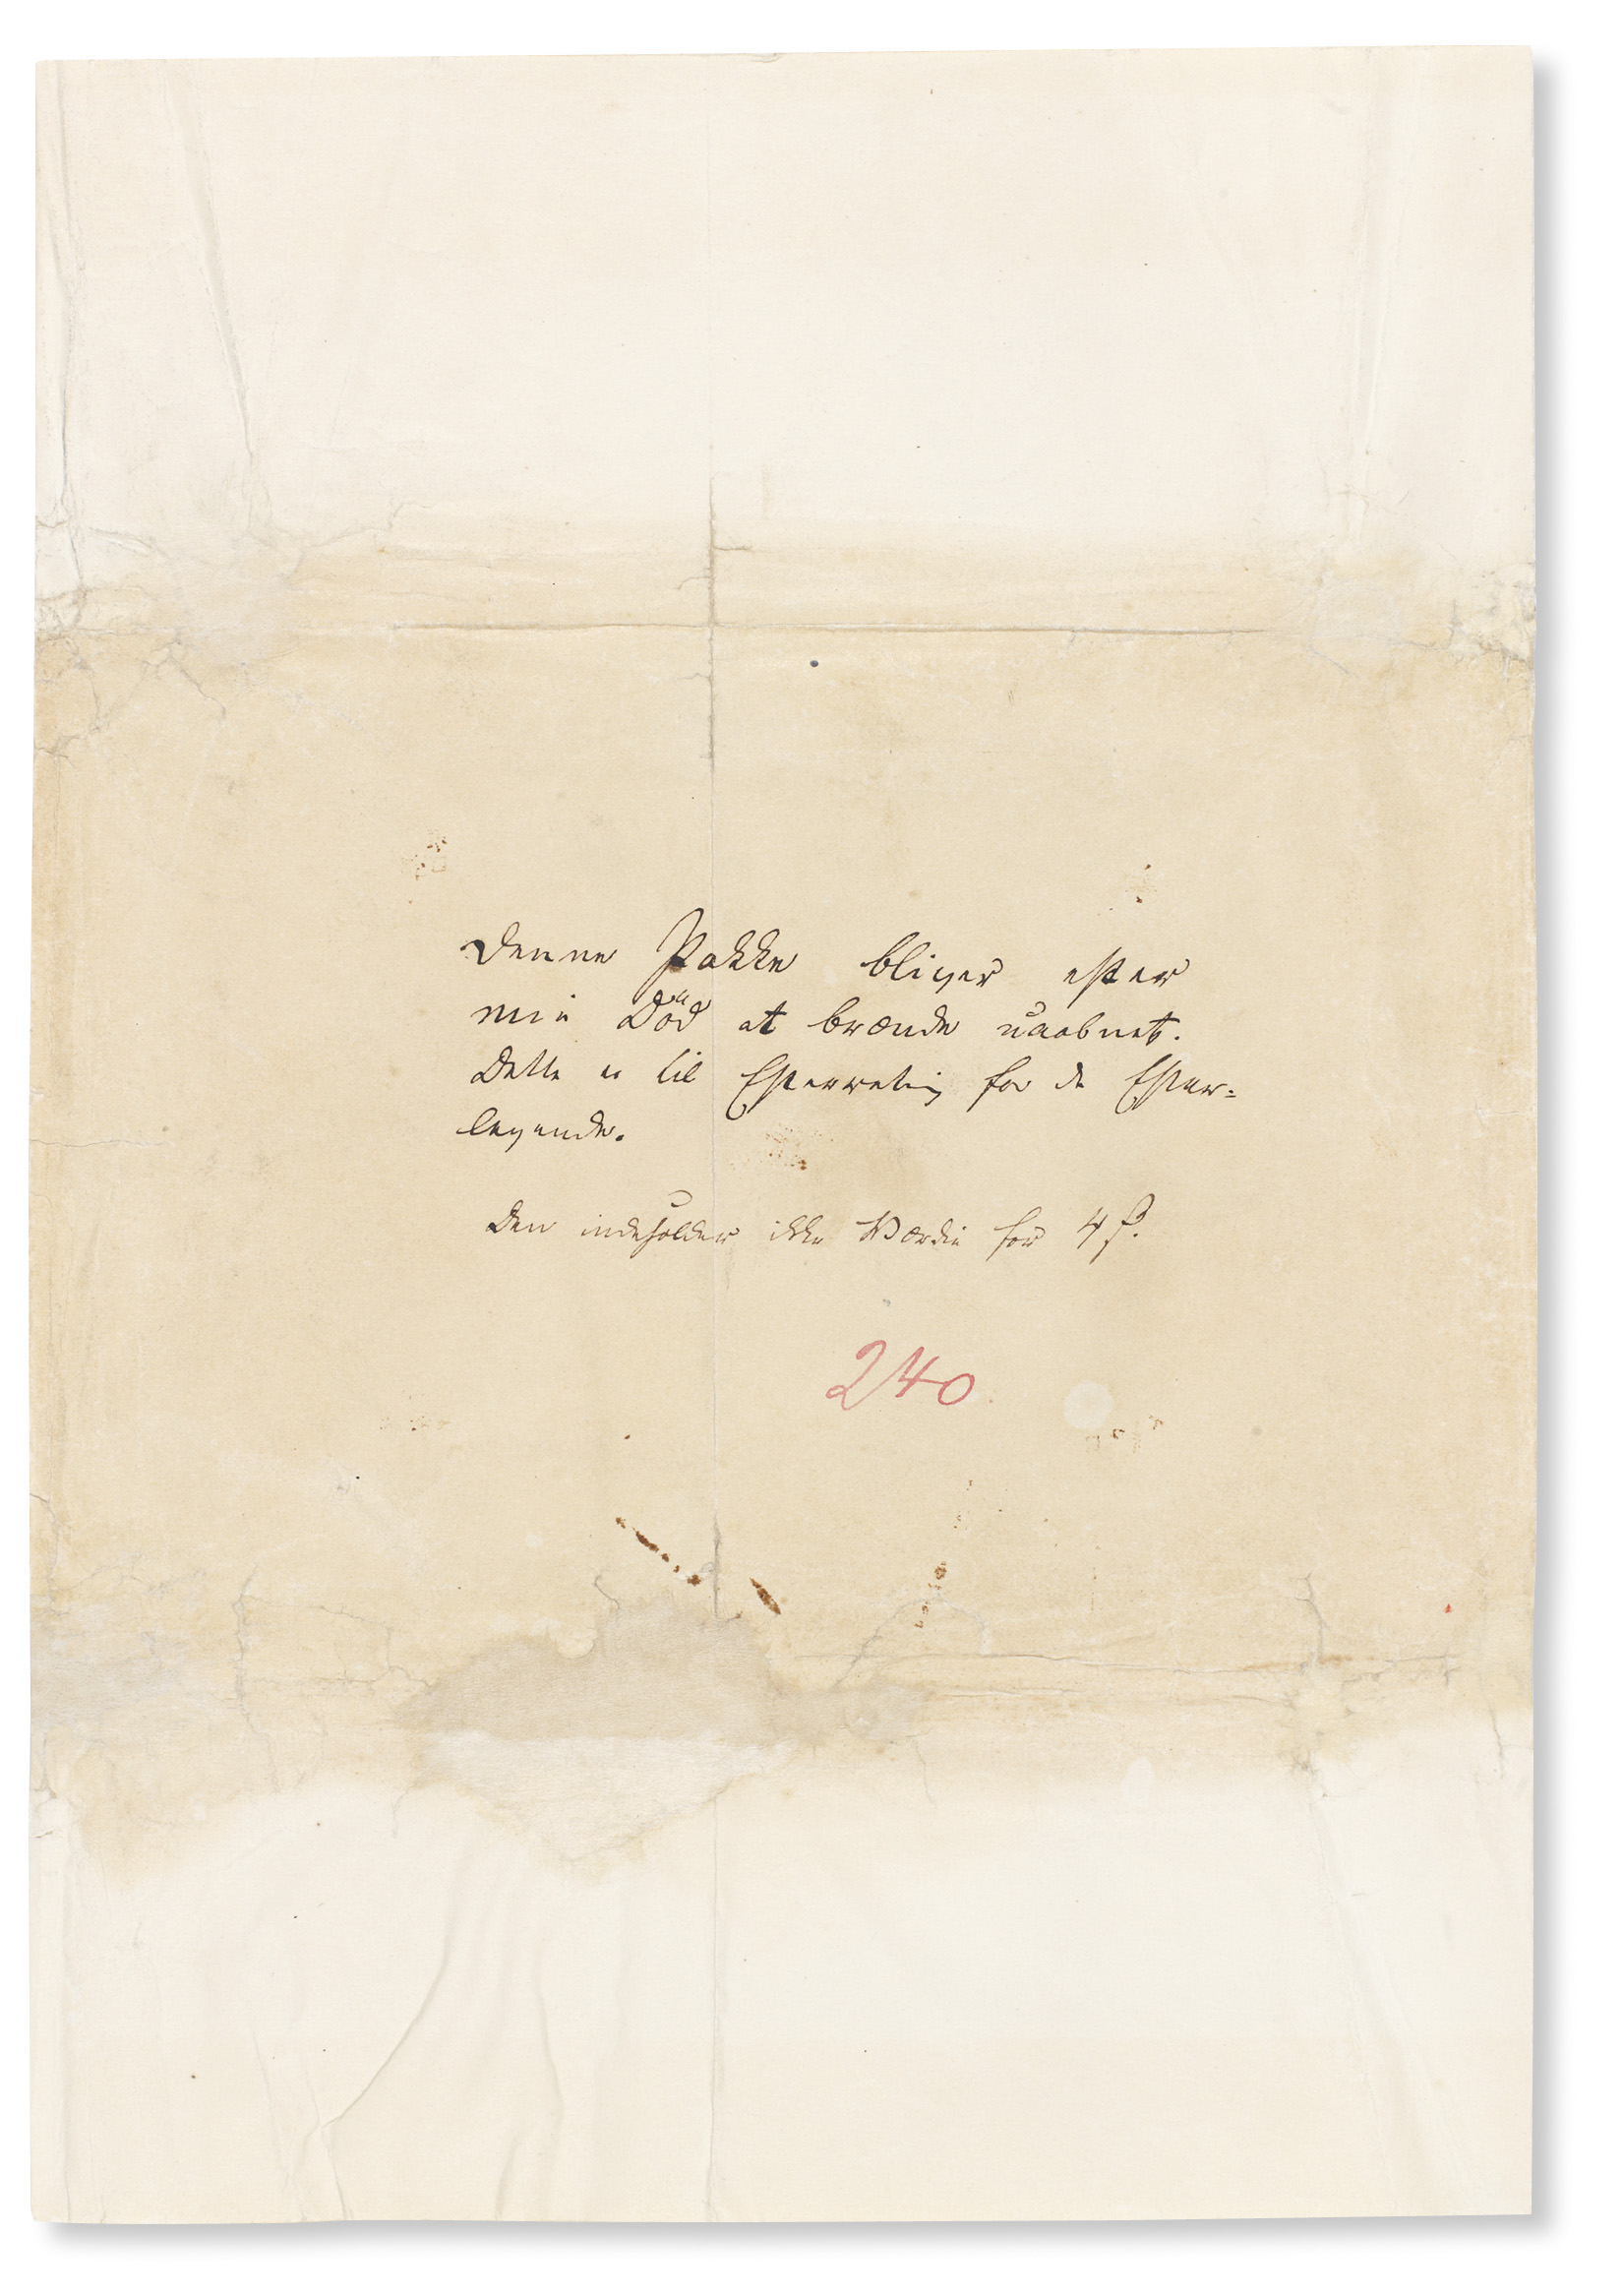 Denne Pakke bliver efter
min Död at brænde uaabnet.
Dette er til Efterretning for de Efter=
levende.
Den indeholder ikke Værdie for 4 ß.
240